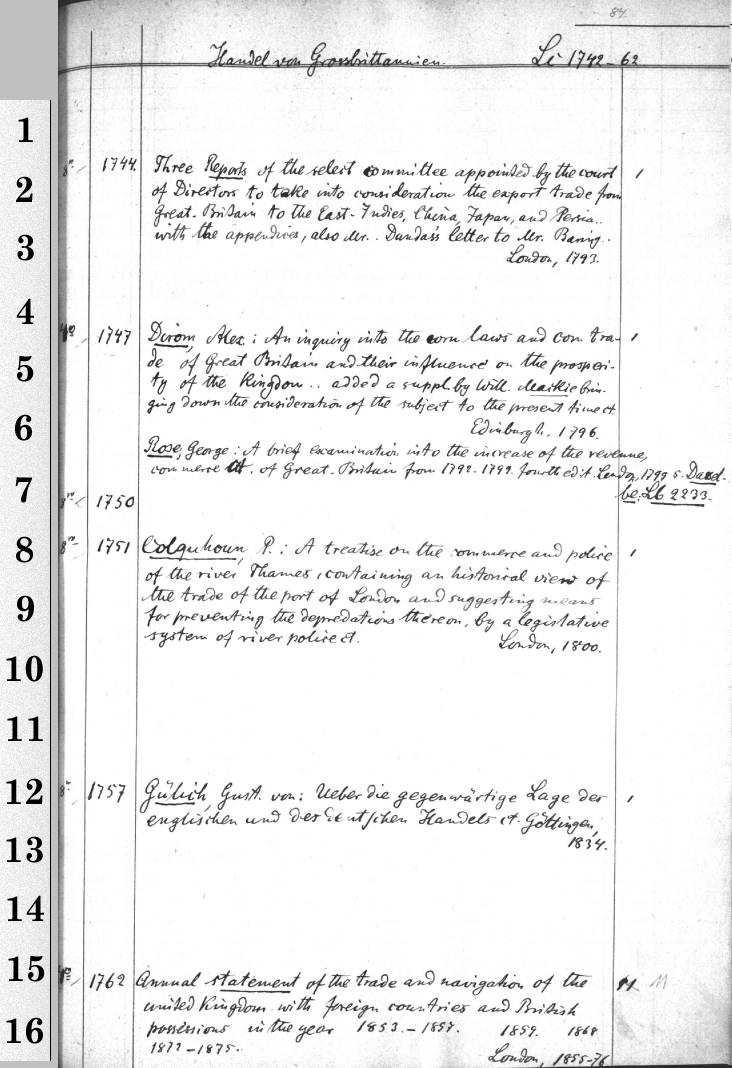 84.
Handel von Grossbrittannien. Li 1742-62
8o 1744. Three Reports of the select committee appointed by the court 1
of Directors to take into consideration the export trade from
Great-Britain to the East-Indies, China, Japan, and Persia..
with the appendices, also Mr.. Dundas's letter to Mr. Baring..
London, 1793.
4o 1747 Dirom, Alex.: An inquiry into the corn laws and corn tra- 1
de of Great Britain and their influence on the prosperi-
ty of the Kingdom.. added a suppl. by Will. Mackie brin-
ging down the consideration of the subject to the present time ct
Edinburgh, 1796.
Rose, George: A brief examination into the increase of the revenue,
commerce ct. of Great-Britain from 1792-1799. fourth edit. London, 1799 s. Dasel-
8o 1750 be: Lb 2233.
8o 1751 Colquhoun, P.: A treatise on the commerce and police 1
of the river Thames, containing an historical view of
the trade of the port of London and suggesting means
for preventing the depredations thereon, by a legislative
system of river police ct. London, 1800.
8o 1757 Gülich, Gust. von: Ueber die gegenwärtige Lage des 1
englischen und des deutschen Handels ct. Göttingen,
1834.
4o 1762 Annual statement of the trade and navigation of the 11 11
united Kingdom with foreign countries and British
possessions in the year 1853.-1857. 1859. 1868
1872-1875. London, 1855-76
1
2
3
4
5
6
7
8
9
10
11
12
13
14
15
16